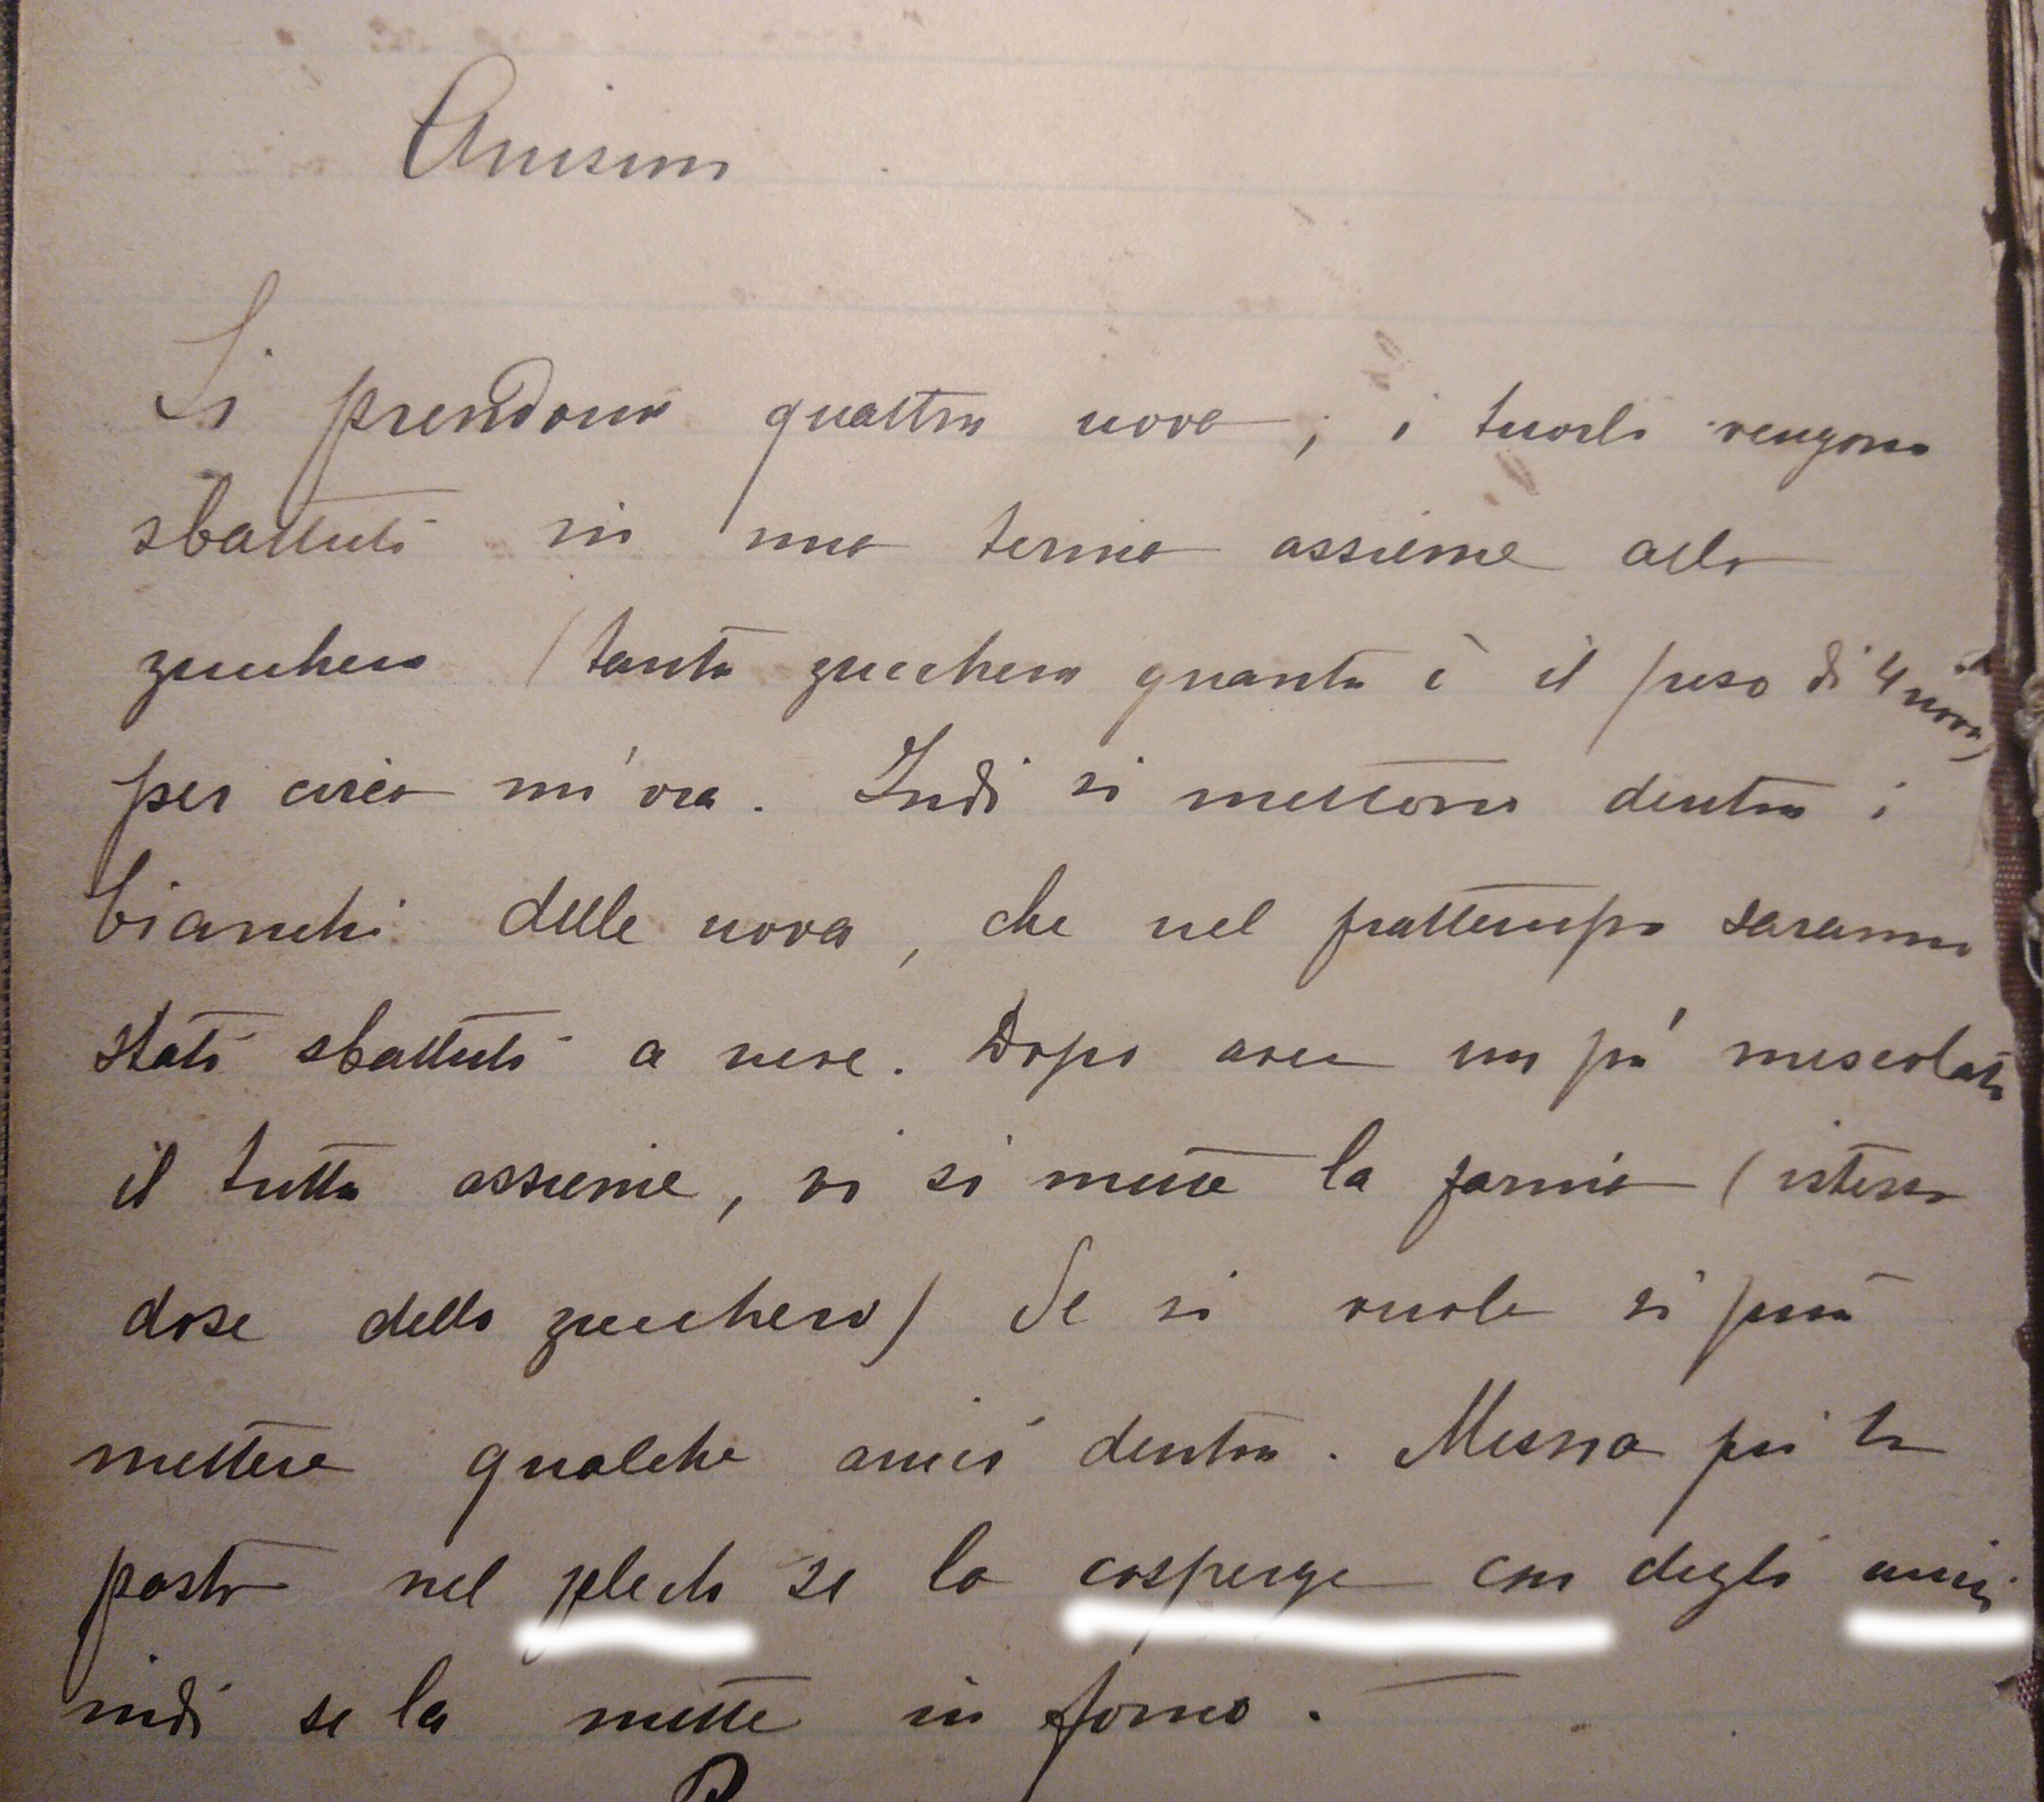 Anisini
Si prendono quattro uova; i tuorli vengono
sbattuti in una terina assieme allo
zucchero (tanto zucchero quanto è il peso di 4 uova)
per circa un'ora. Indi si mettono dentro i
bianchi delle uova, che nel frattempo saranno
stati sbattuti a neve. Dopo aver un pó mescolato
il tutto assieme, vi si mette la farina (istessa
dose dello zucchero) Se si vuole si può
mettere qualche anici dentro. Messa poi la
pasta nel plech se la cosperge con degli anici
indi se la mette in forno.